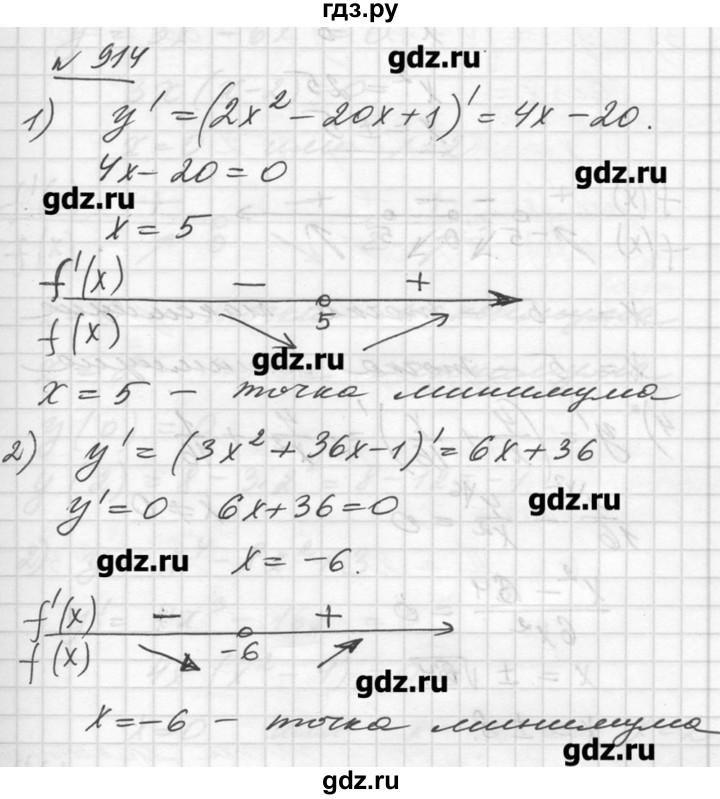 гдз.ру
№ 914
gdz.ru
1) y' = (2x² - 20x + 1)' = 4x - 20.
4x - 20 = 0
gdz.ru
gdz.ru
x = 5
f'(x) - +
5
f(x)
gdz.ru
x = 5 - точка минимума
2) y' = (3x² + 36x - 1)' = 6x + 36
y' = 0 6x + 36 = 0
gdz.ru
gdz.ru
x = -6.
f'(x) - +
-6
f(x)
gdz.ru
x = -6 - точка минимума
gdz.ru
gdz.ru